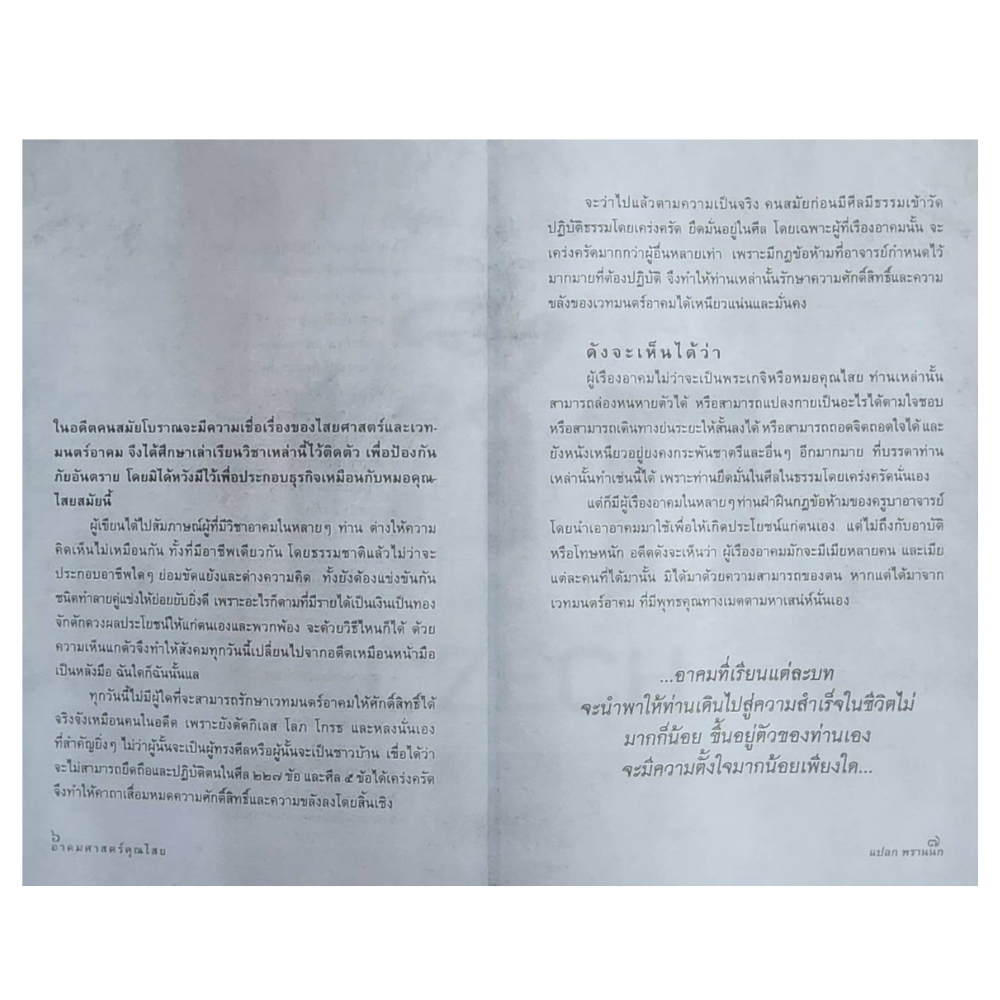 ในอดีตคนสมัยโบราณจะมีความเชื่อเรื่องของไสยศาสตร์และเวท-
มนตร์อาคม จึงได้ศึกษาเล่าเรียนวิชาเหล่านี้ไว้ติดตัว เพื่อป้องกัน
ภัยอันตราย โดยมิได้หวังมีไว้เพื่อประกอบธุรกิจเหมือนกับหมอคุณ-
ไสยสมัยนี้
ผู้เขียนได้ไปสัมภาษณ์ผู้ที่มีวิชาอาคมในหลายๆ ท่าน ต่างให้ความ
คิดเห็นไม่เหมือนกัน ทั้งที่มีอาชีพเดียวกัน โดยธรรมชาติแล้วไม่ว่าจะ
ประกอบอาชีพใดๆ ย่อมขัดแย้งและต่างความคิด ทั้งยังต้องแข่งขันกัน
ชนิดทำลายคู่แข่งให้ย่อยยับยิ่งดี เพราะอะไรก็ตามที่มีรายได้เป็นเงินเป็นทอง
จักตักตวงผลประโยชน์ให้แก่ตนเองและพวกพ้อง จะด้วยวิธีไหนก็ได้ ด้วย
ความเห็นแก่ตัวจึงทำให้สังคมทุกวันนี้เปลี่ยนไปจากอดีตเหมือนหน้ามือ
เป็นหลังมือ ฉันใดก็ฉันนั้นแล
ทุกวันนี้ไม่มีผู้ใดที่จะสามารถรักษาเวทมนตร์อาคมให้ศักดิ์สิทธิ์ได้
จริงจังเหมือนคนในอดีต เพราะยังตัดกิเลส โลภ โกรธ และหลงนั่นเอง
ที่สำคัญยิ่งๆ ไม่ว่าผู้นั้นจะเป็นผู้ทรงศีลหรือผู้นั้นจะเป็นชาวบ้าน เชื่อได้ว่า
จะไม่สามารถยึดถือและปฏิบัติตนในศีล ๒๒๗ ข้อ และศีล ๕ ข้อได้เคร่งครัด
จึงทำให้คาถาเสื่อมหมดความศักดิ์สิทธิ์และความขลังลงโดยสิ้นเชิง
๖
อาคมศาสตร์คุณไสย
จะว่าไปแล้วตามความเป็นจริง คนสมัยก่อนมีศีลมีธรรมเข้าวัด
ปฏิบัติธรรมโดยเคร่งครัด ยึดมั่นอยู่ในศีล โดยเฉพาะผู้ที่เรืองอาคมนั้น จะ
เคร่งครัดมากกว่าผู้อื่นหลายเท่า เพราะมีกฎข้อห้ามที่อาจารย์กำหนดไว้
มากมายที่ต้องปฏิบัติ จึงทำให้ท่านเหล่านั้นรักษาความศักดิ์สิทธิ์และความ
ขลังของเวทมนตร์อาคมได้เหนียวแน่นและมั่นคง
ดังจะเห็นได้ว่า
ผู้เรืองอาคมไม่ว่าจะเป็นพระเกจิหรือหมอคุณไสย ท่านเหล่านั้น
สามารถล่องหนหายตัวได้ หรือสามารถแปลงกายเป็นอะไรได้ตามใจชอบ
หรือสามารถเดินทางย่นระยะให้สั้นลงได้ หรือสามารถถอดจิตถอดใจได้ และ
ยังหนังเหนียวอยู่ยงคงกระพันชาตรีและอื่นๆ อีกมากมาย ที่บรรดาท่าน
เหล่านั้นทำเช่นนี้ได้ เพราะท่านยึดมั่นในศีลในธรรมโดยเคร่งครัดนั่นเอง
แต่ก็มีผู้เรืองอาคมในหลายๆ ท่านฝ่าฝืนกฎข้อห้ามของครูบาอาจารย์
โดยนำเอาอาคมมาใช้เพื่อให้เกิดประโยชน์แก่ตนเอง แต่ไม่ถึงกับอาบัติ
หรือโทษหนัก อดีตดังจะเห็นว่า ผู้เรืองอาคมมักจะมีเมียหลายคน และเมีย
แต่ละคนที่ได้มานั้น มิได้มาด้วยความสามารถของตน หากแต่ได้มาจาก
เวทมนตร์อาคม ที่มีพุทธคุณทางเมตตามหาเสน่ห์นั่นเอง
...อาคมที่เรียนแต่ละบท
จะนำพาให้ท่านเดินไปสู่ความสำเร็จในชีวิตไม่
มากก็น้อย ขึ้นอยู่ตัวของท่านเอง
จะมีความตั้งใจมากน้อยเพียงใด...
๗
แปลก พรานนึก